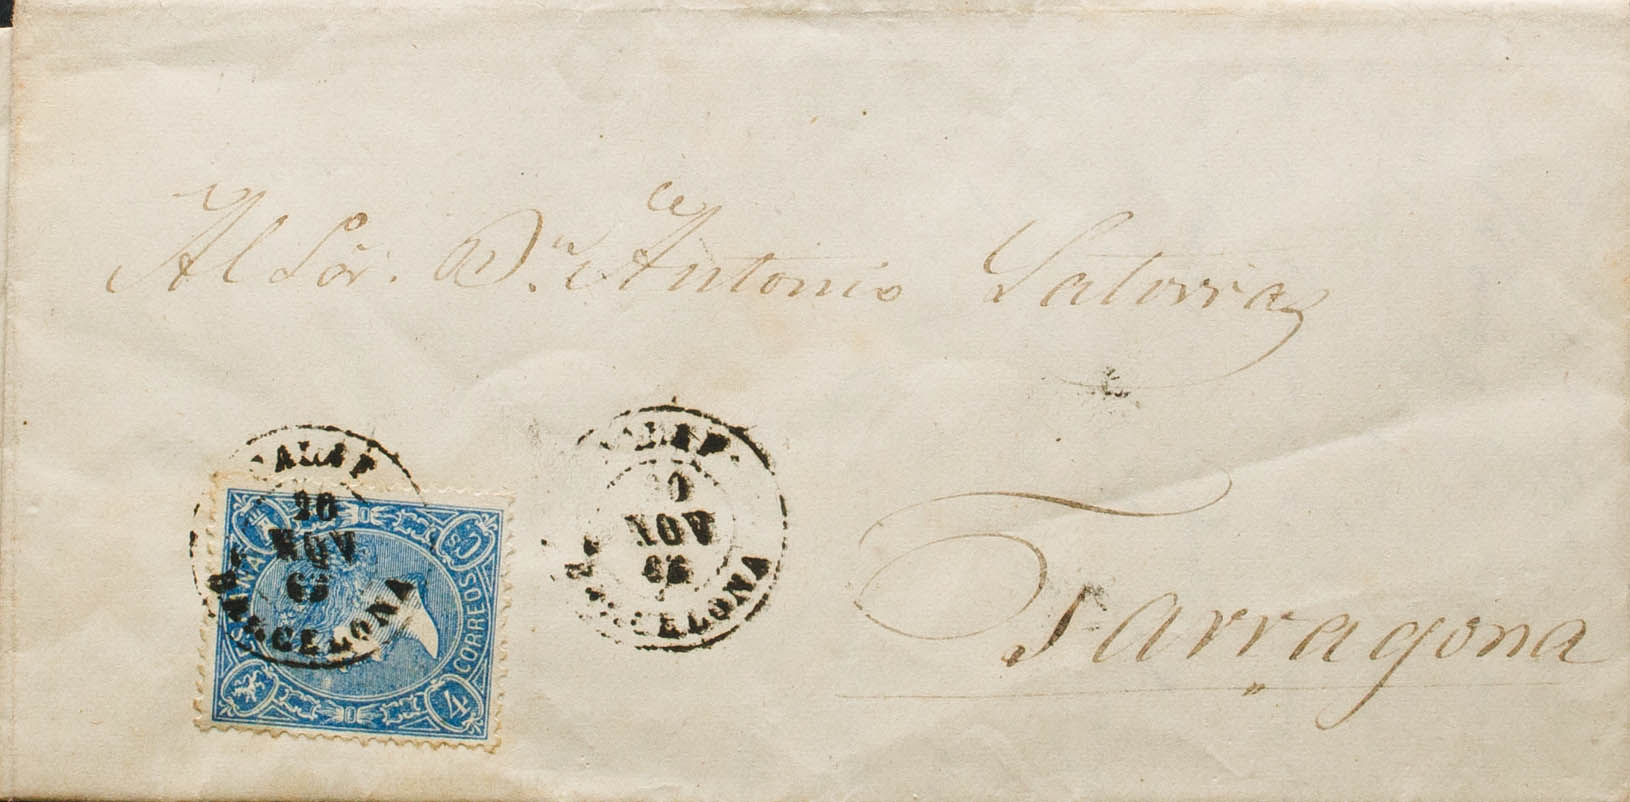 Al Sor. Dn. Antonio Satorras
Tarragona
20
NOV
65
BARCELONA
20
NOV
65
BARCELONA
CORREOS
4
Cs